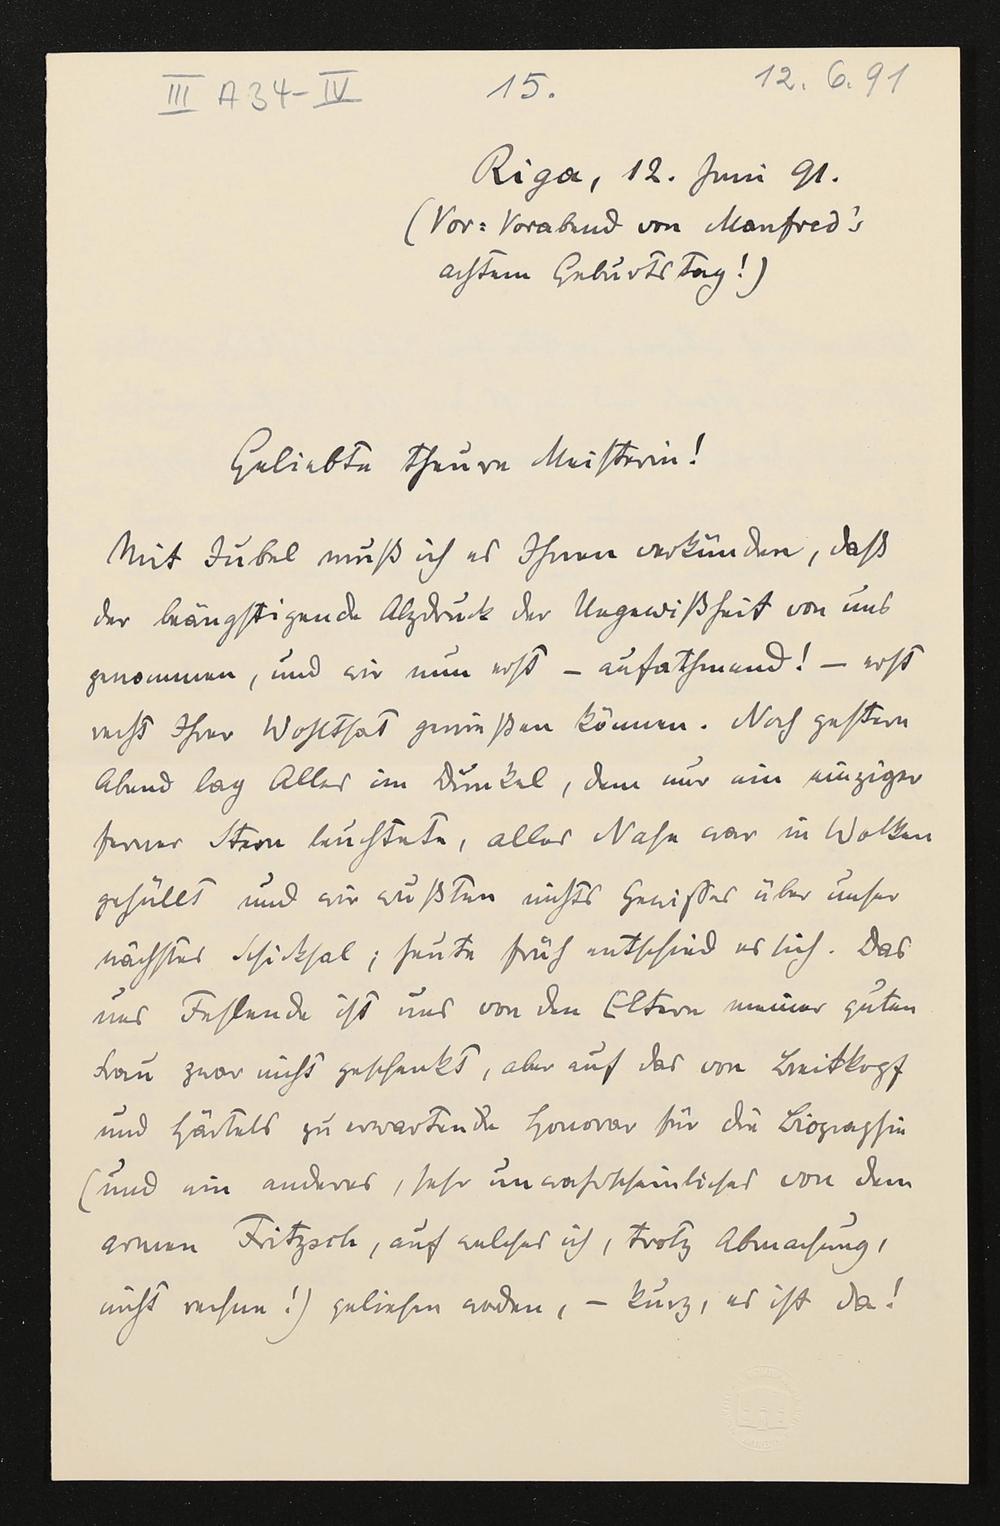 III A 34-IV 15. 12. 6. 91
Riga, 12. Juni 91.
(Vor=Vorabend von Manfred's
achtem Geburtstag!)
Geliebte theure Meisterin!
Mit Jubel muß ich es Ihnen verkünden, daß
der beängstigende Alpdruck der Ungewißheit von uns
genommen, und wir nun erst – aufathmend! – erst
recht Ihrer Wohlthat genießen können. Noch gestern
Abend lag Alles im Dunkel, dem nur ein einziger
ferner Stern leuchtete, alles Nahe war in Wolken
gehüllt und wir wußten nichts Gewisses über unser
nächstes Schicksal; heute früh entschied es sich. Das
uns Fehlende ist uns von den Eltern meiner guten
Frau zwar nicht geschenkt, aber auf das von Breitkopf
und Härtels zu erwartende Honorar für die Biographie
(und ein anderes, sehr unwahrscheinliches von dem
armen Fritzsch, auf welches ich, trotz Abmachung,
nicht rechne!) geliehen worden, – kurz, es ist da!